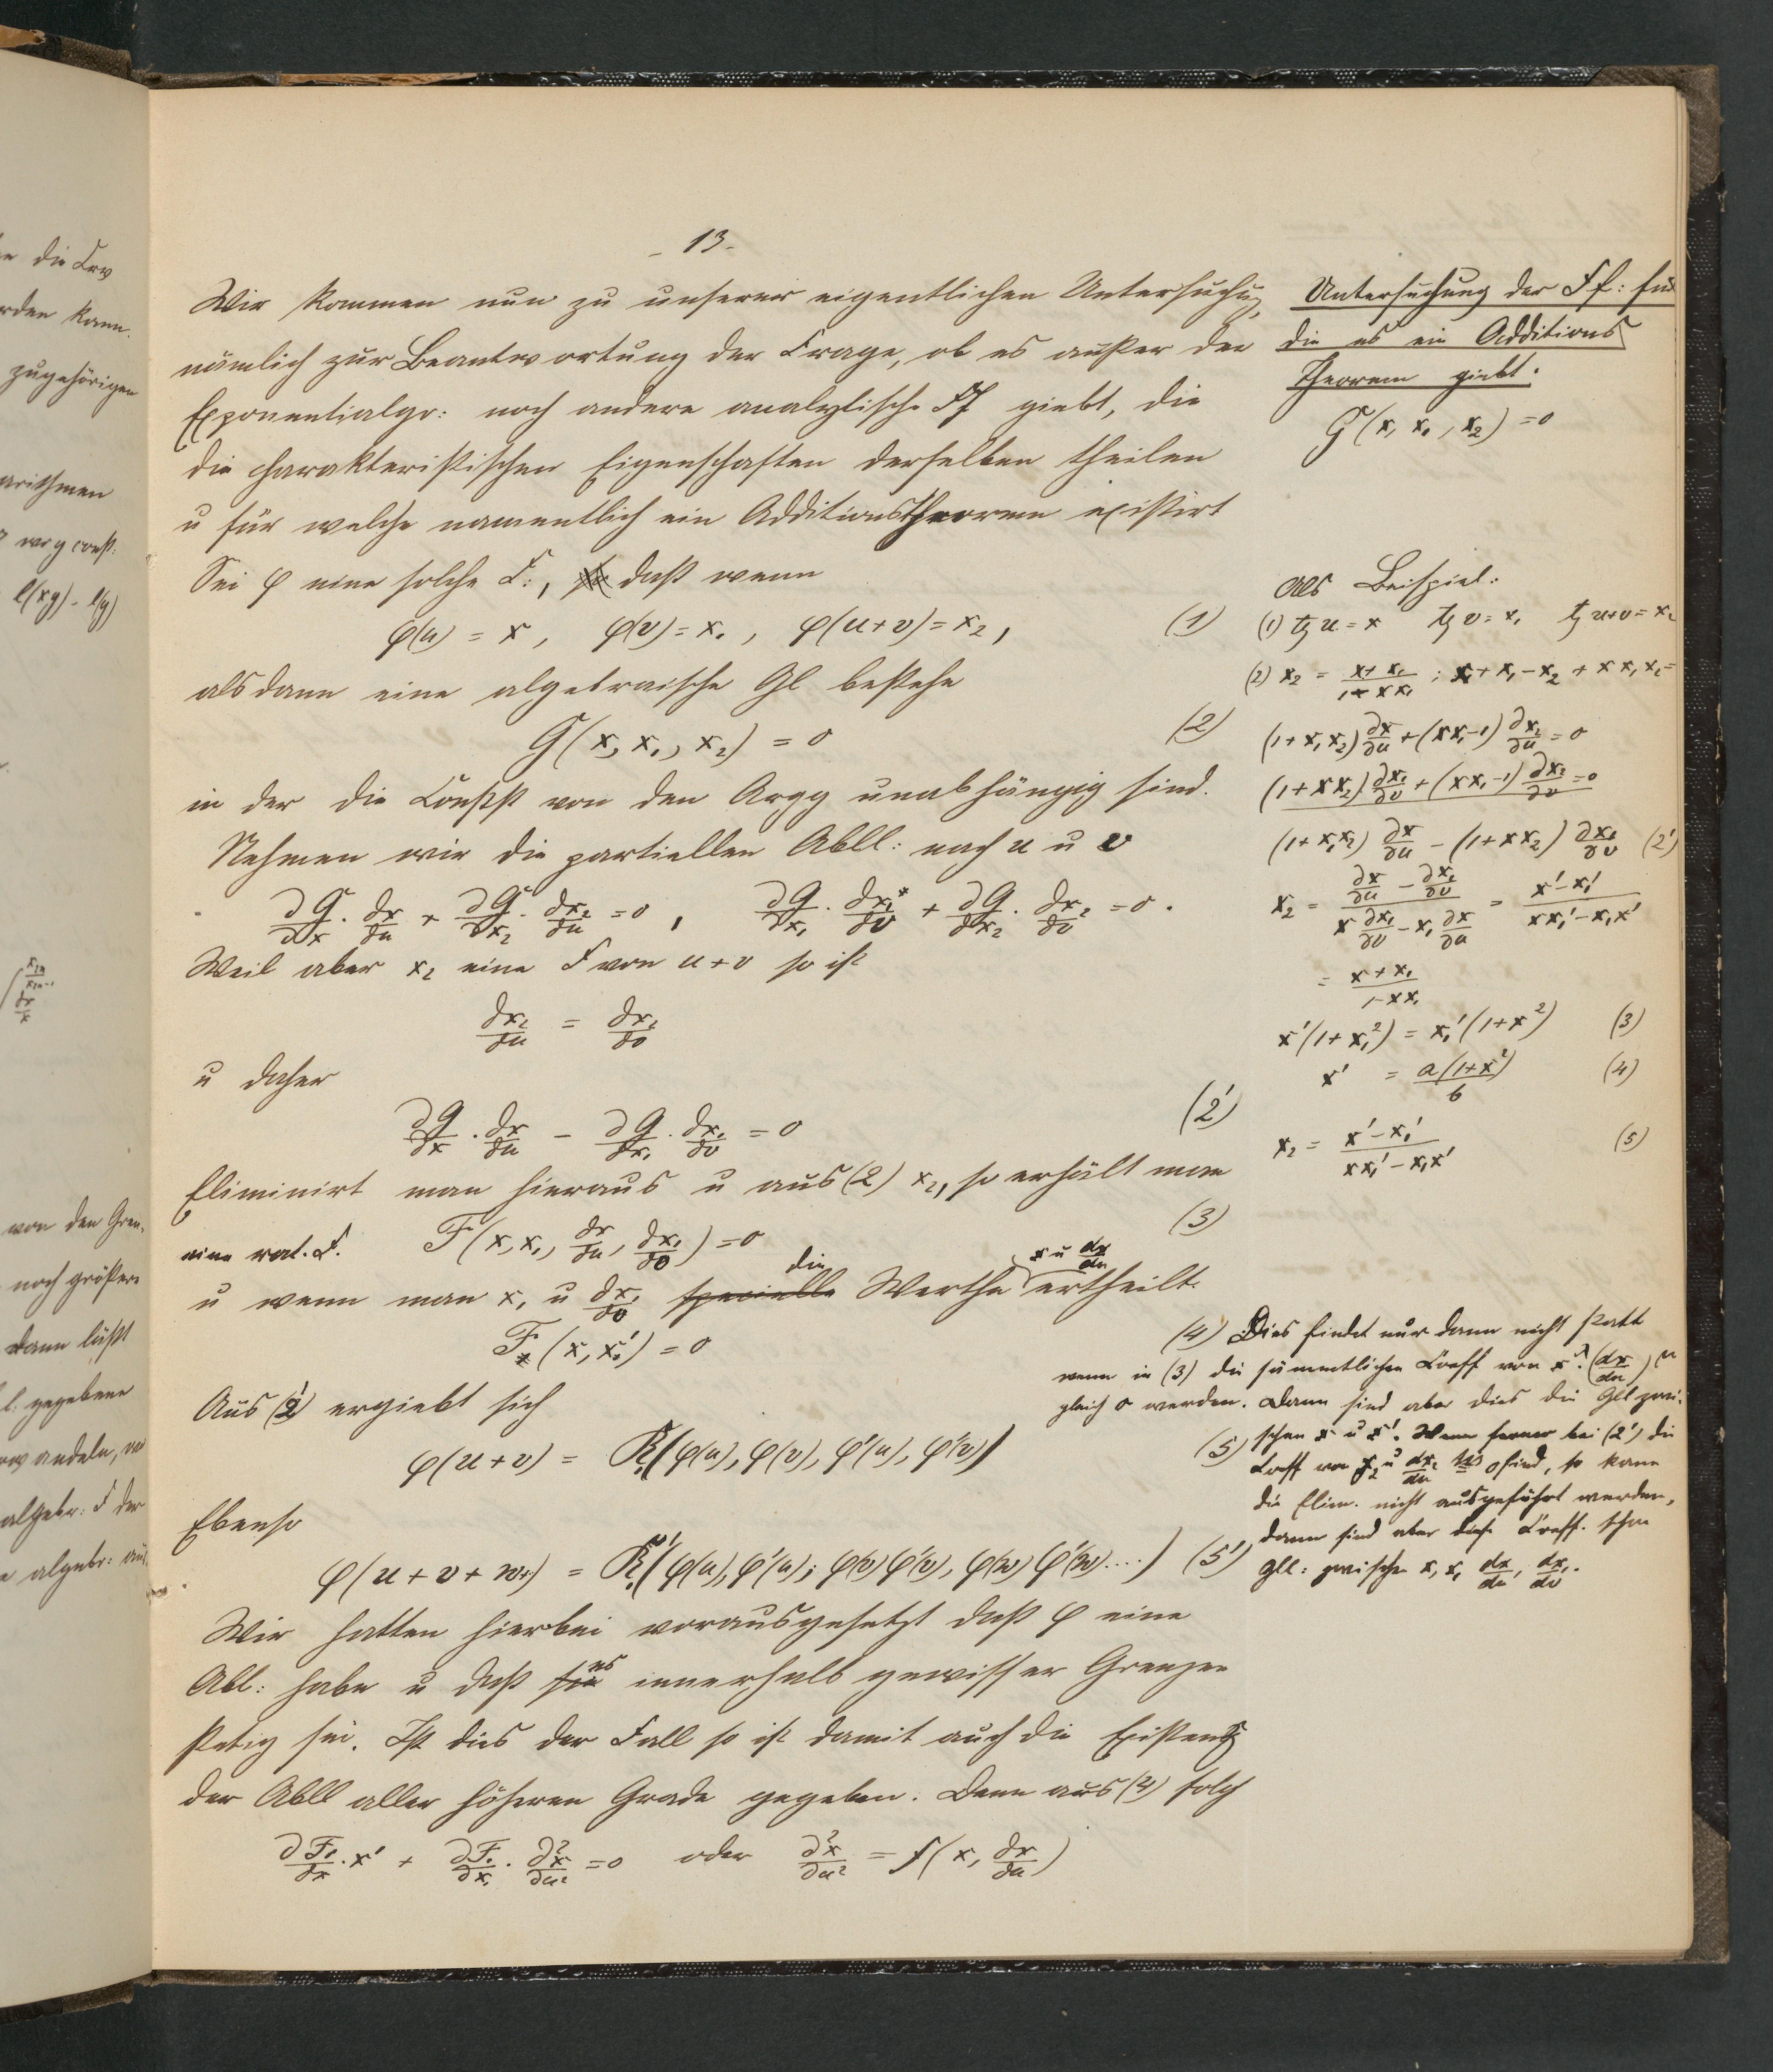 - 13 -
Wir kommen nun zu unserer eigentlichen Untersuchung,
nämlich zur Beantwortung der Frage, ob es außer der
Exponentialgr: noch andere analytische Ff giebt, die
die charakteristischen Eigenschaften derselben theilen
u für welche namentlich ein Additionstheorem existirt
Sei φ eine solche F:, daß wenn
φ(u) = x, φ(v) = x₁, φ(u+v) = x₂, (1)
alsdann eine algebraische Gl bestehe
G(x, x₁, x₂) = 0 (2)
in der die Constst von den Argg unabhängig sind.
Nehmen wir die partiellen Abll: nach u u v
∂G/∂x · ∂x/∂u + ∂G/∂x₂ · ∂x₂/∂u = 0, ∂G/∂x₁ · ∂x₁/∂v + ∂G/∂x₂ · ∂x₂/∂v = 0.
Weil aber x₂ eine F von u+v so ist
∂x₂/∂u = ∂x₂/∂v
u daher
∂G/∂x · ∂x/∂u - ∂G/∂x₁ · ∂x₁/∂v = 0 (2')
Eliminirt man hieraus u aus (2) x₂, so erhält man
eine rat. F. F(x, x₁, ∂x/∂u, ∂x₁/∂v) = 0 (3)
u wenn man x₁ u ∂x₁/∂v specielle die Werthe x u dx/du ertheilt.
F(x, x') = 0
Aus (2') ergiebt sich
φ(u+v) = R(φ(u), φ(v), φ'(u), φ'(v)) (5)
Ebenso
φ(u+v+w+) = R'(φ(u), φ'(u); φ(v) φ'(v), φ(w) φ'(w)....) (5')
Wir hatten hierbei vorausgesetzt daß φ eine
Abl: habe u daß sie es innerhalb gewisser Grenzen
stetig sei. Ist dies der Fall so ist damit auch die Existenz
der Abll aller höheren Grade gegeben. Denn aus (4) folgt
∂F₁/∂x · x' + ∂F₁/∂x₁ · ∂²x/∂u² = 0 oder ∂²x/∂u² = f(x, ∂x/∂u)
Untersuchung der Ff: für
die es ein Additions
Theorem giebt.
G(x, x₁, x₂) = 0
Als Beispiel:
(1) tg u = x tg v = x₁ tg u+v = x₂
(2) x₂ = x+x₁/1-xx₁; x+x₁-x₂+xx₁x₂=
(1+x₁x₂) ∂x/∂u + (xx₁-1) ∂x₂/∂u = 0
(1+xx₂) ∂x₁/∂v + (xx₁-1) ∂x₂/∂v = 0
(1+x₁x₂) ∂x/∂u - (1+xx₂) ∂x₁/∂v (2')
x₂ = (∂x/∂u - ∂x₁/∂v)/(x ∂x₁/∂v - x₁ ∂x/∂u) = x'-x₁'/xx₁'-x₁x'
= x+x₁/1-xx₁
x'(1+x₁²) = x₁'(1+x²) (3)
x' = a(1+x²)/b (4)
x₂ = x'-x₁'/xx₁'-x₁x' (5)
(4) Dies findet nur dann nicht statt
wenn in (3) die sämmtlichen Coeff von x^λ · (dx/du)^μ
gleich 0 werden. Dann sind aber dies die Gll zwi-
schen x u x'. Wenn ferner bei (2') die
Coeff von x₂ u dx₂/du 0 sind, so kann
die Elim. nicht ausgeführt werden,
dann sind aber diese Coeff. schon
Gll: zwischen x, x₁ dx/du, dx₁/dv.
die Crv
rden kann.
zugehörigen
arithmen
l(xy) - l(y)
von den Gren-
noch größere
dann läßt
l. gegebene
wandeln, w
algebr: F der
algebr: aus